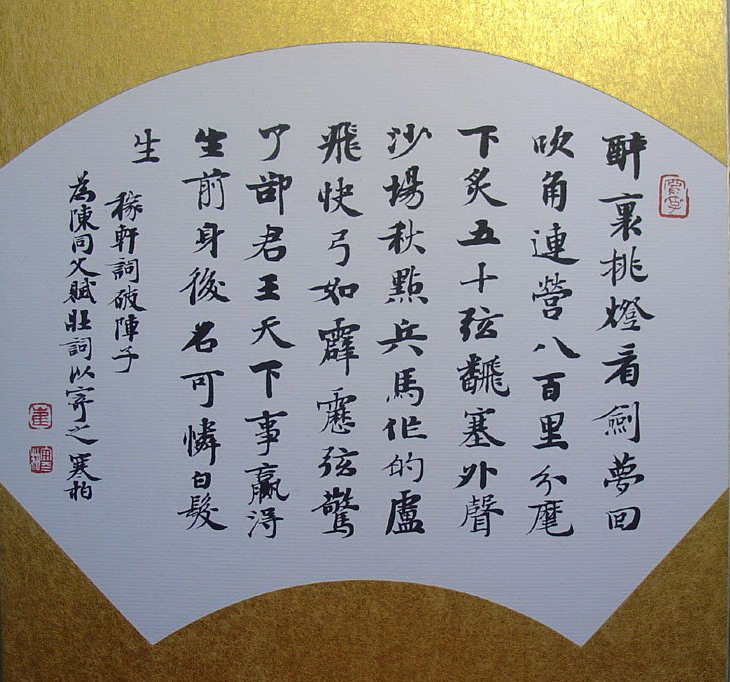 醉裏挑燈看劍夢回
吹角連營八百里分麾
下炙五十弦飜塞外聲
沙場秋點兵馬作的盧
飛快弓如霹靂弦驚
了卻君王天下事贏得
生前身後名可憐白髮
生
稼軒詞破陣子
為陳同父賦壯詞以寄之 寒柏